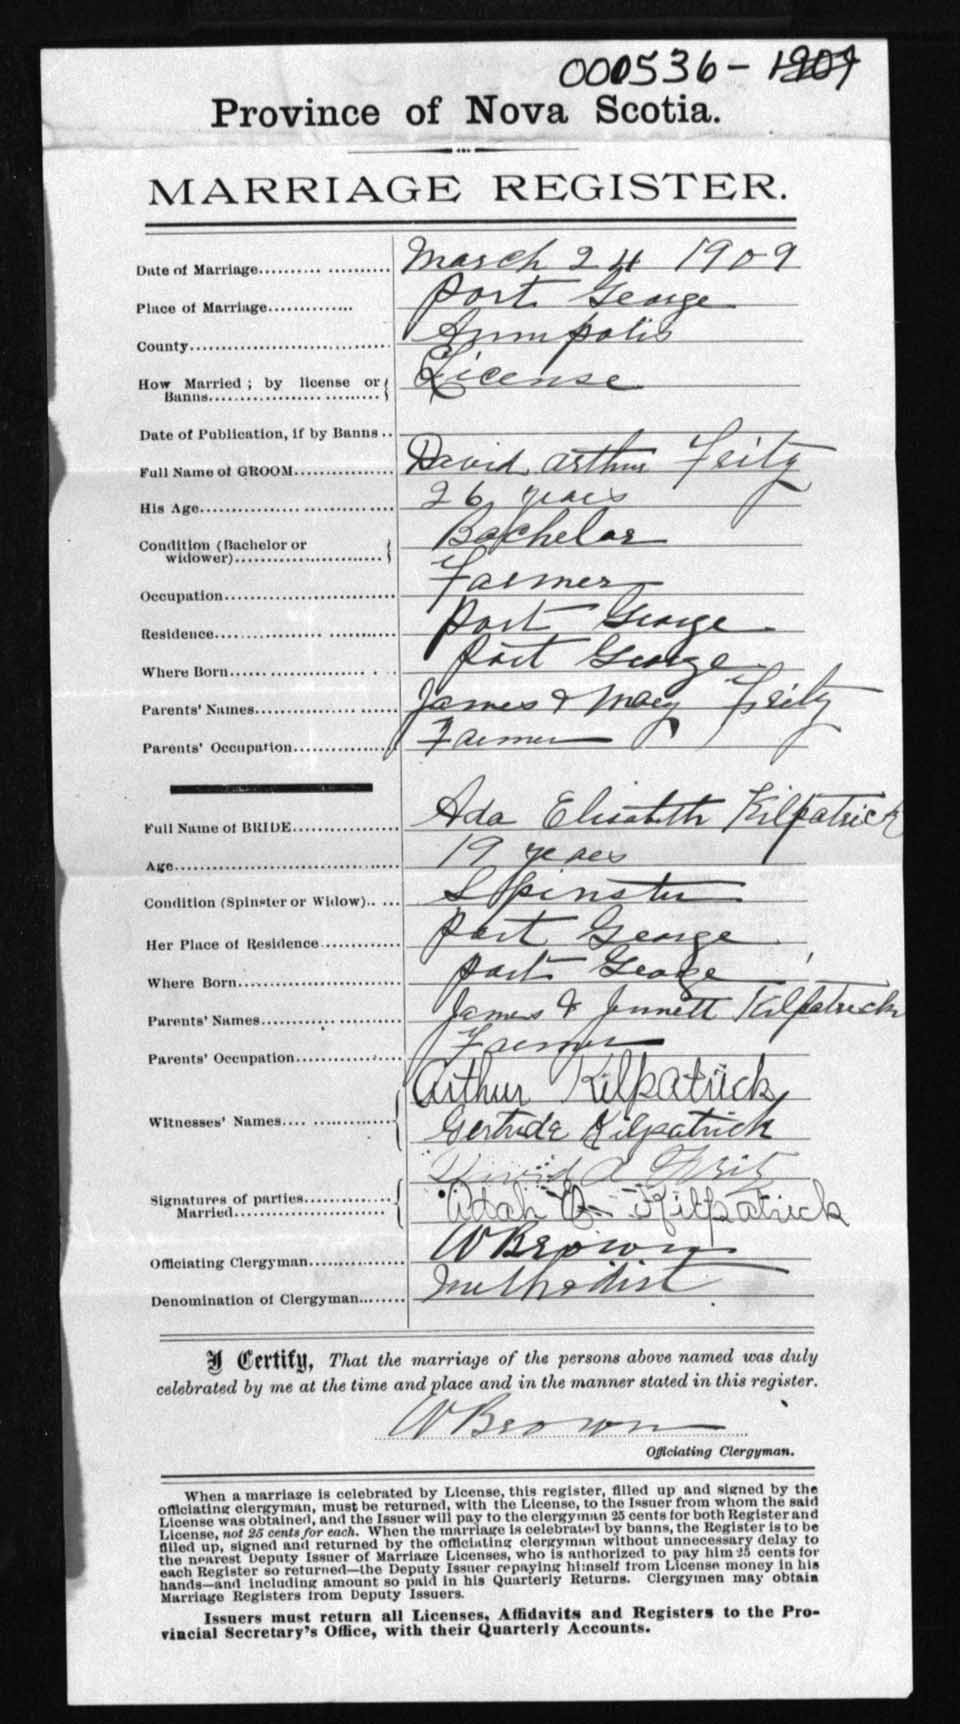 000536 - 1909
Province of Nova Scotia.
MARRIAGE REGISTER.
Date of Marriage.......... ........... March 24 1909
Place of Marriage.............. Port George
County.................................. Annapolis
How Married ; by license or Banns................... ......... License
Date of Publication, if by Banns ..
Full Name of GROOM................ David Arthur Fritz
His Age................. ............... 26 years
Condition (Bachelor or widower)......................... Bachelor
Occupation............................. Farmer
Residence.................. ........... Port George
Where Born...................... . ... Port George
Parents' Names............. .......... James & Mary Fritz
Parents' Occupation................ Farmer
Full Name of BRIDE................. Ada Elisabeth Kilpatrick
Age...................................... 19 years
Condition (Spinster or Widow).. .... Spinster
Her Place of Residence............. Port George
Where Born........................... Port George
Parents' Names............. .......... James & Jennett Kilpatrick
Parents' Occupation................. Farmer
Witnesses' Names.... .............. Arthur Kilpatrick
Gertrude Kilpatrick
David A Fritz
Signatures of parties.............. Married......................... Adah E. Kilpatrick
Officiating Clergyman............... W Brown
Denomination of Clergyman........ Methodist
I Certify, That the marriage of the persons above named was duly
celebrated by me at the time and place and in the manner stated in this register.
W Brown
Officiating Clergyman.
When a marriage is celebrated by License, this register, filled up and signed by the
officiating clergyman, must be returned, with the License, to the Issuer from whom the said
License was obtained, and the Issuer will pay to the clergyman 25 cents for both Register and
License, not 25 cents for each. When the marriage is celebrated by banns, the Register is to be
filled up, signed and returned by the officiating clergyman without unnecessary delay to
the nearest Deputy Issuer of Marriage Licenses, who is authorized to pay him 25 cents for
each Register so returned—the Deputy Issuer repaying himself from License money in his
hands—and including amount so paid in his Quarterly Returns. Clergymen may obtain
Marriage Registers from Deputy Issuers.
Issuers must return all Licenses, Affidavits and Registers to the Pro-
vincial Secretary's Office, with their Quarterly Accounts.